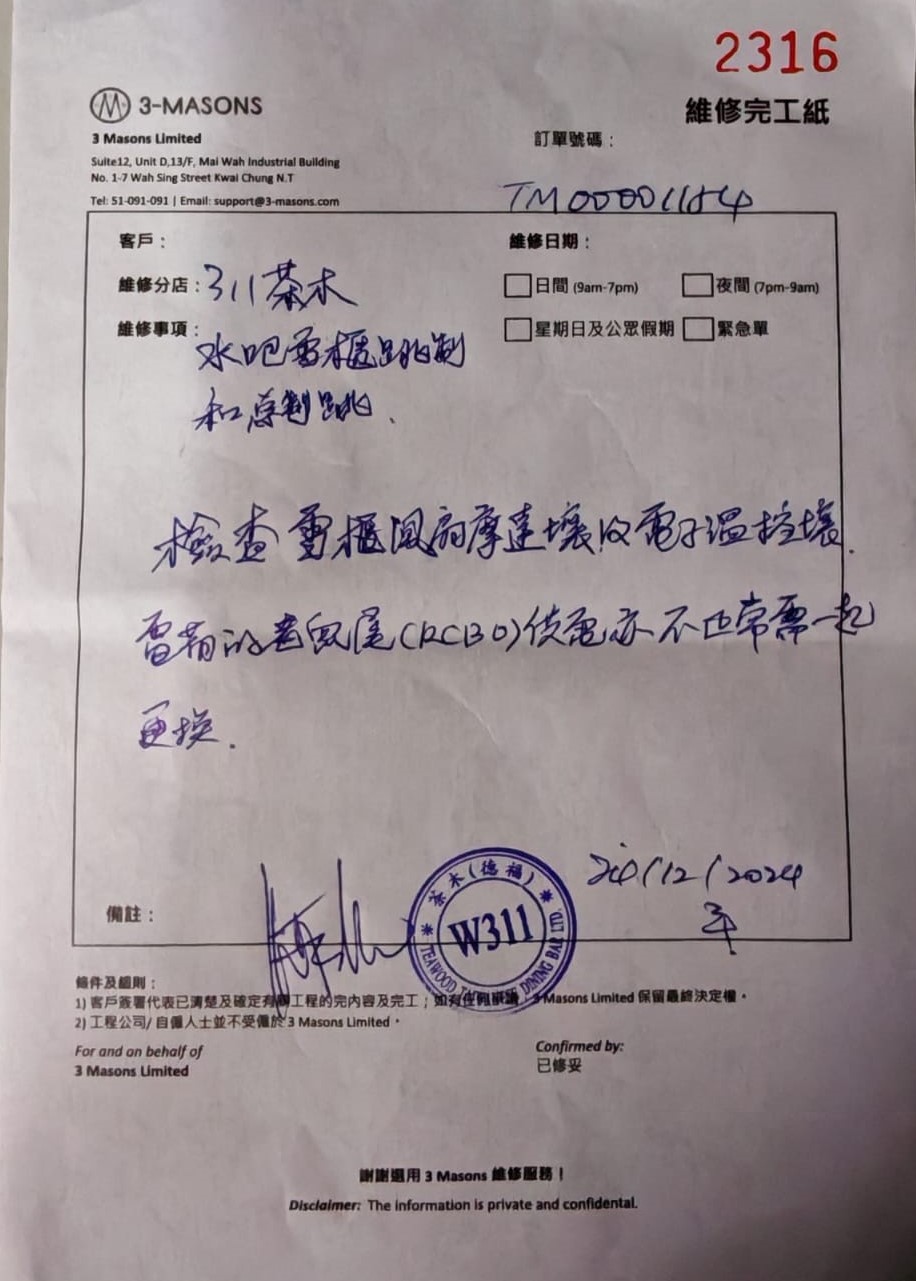 2316
3-MASONS
維修完工紙
3 Masons Limited
訂單號碼：
Suite12, Unit D,13/F, Mai Wah Industrial Building
No. 1-7 Wah Sing Street Kwai Chung N.T
Tel: 51-091-091 | Email: support@3-masons.com
TM000001184
客戶：
維修日期：
維修分店：311茶木
日間 (9am-7pm)
夜間 (7pm-9am)
維修事項：
星期日及公眾假期
緊急單
水吧雪櫃跳制
和总制跳.
檢查雪櫃風扇摩達壞及電子温控壞.
的老鼠尾(RCBO)供電亦不正常需一起
更换.
/12/2024
備註：
茶木(德福)
W311
TEAWOOD DINING BAR LTD.
條件及細則：
1) 客戶簽署代表已清楚及確定有關工程的完內容及完工；如有任何爭議，3 Masons Limited 保留最終決定權。
2) 工程公司/ 自僱人士並不受僱於 3 Masons Limited。
For and on behalf of
3 Masons Limited
Confirmed by:
已修妥
謝謝選用 3 Masons 維修服務！
Disclaimer: The information is private and confidental.